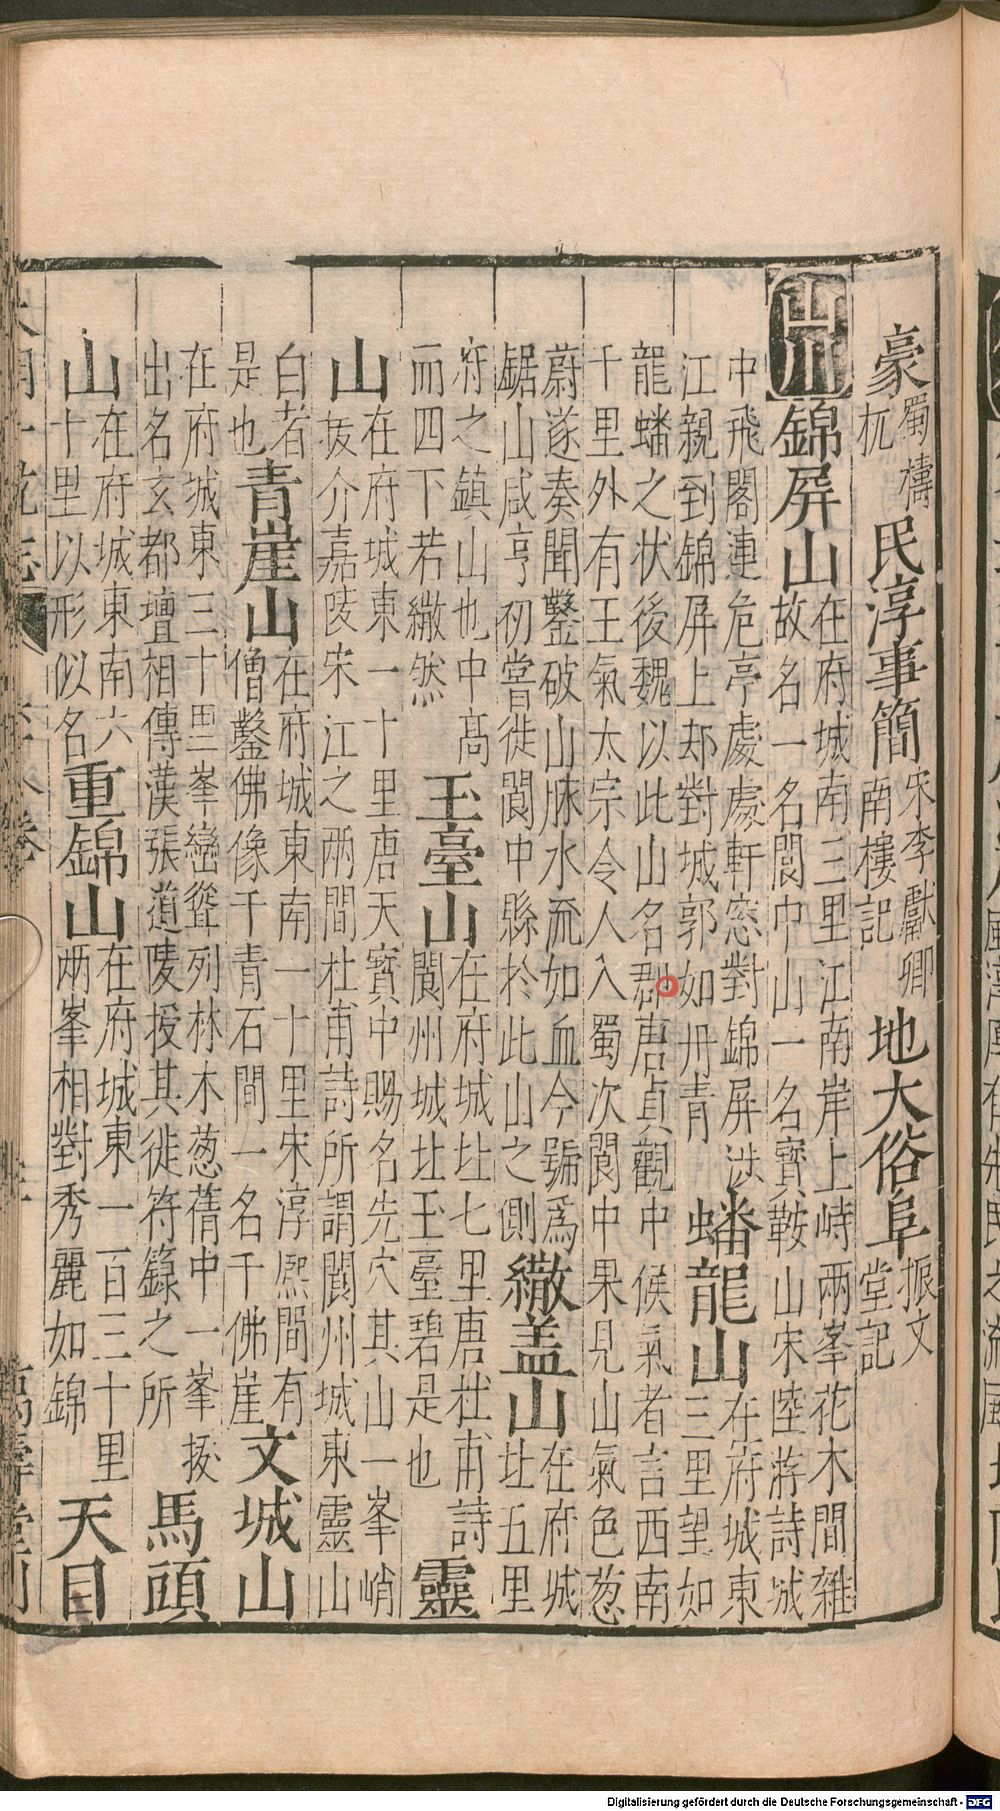 豪蜀檮杌民淳事簡宋李獻卿南樓記地大俗阜振文堂記
山川錦屏山在府城南三里江南岸上峙兩峯花木間雜故名一名閬中山一名寶鞍山宋陸游詩城
中飛閣連危亭處處軒窓對錦屏涉江親到錦屏上却對城郭如丹青蟠龍山在府城東三里望如
龍蟠之狀後魏以此山名郡唐貞觀中候氣者言西南千里外有王氣太宗令人入蜀次閬中果見山氣色葱
蔚遂奏聞鑿破山脉水流如血今號爲鋸山咸亨初嘗徙閬中縣於此山之側繖盖山在府城北五里
府之鎮山也中高而四下若繖然玉臺山在府城北七里唐杜甫詩閬州城北玉臺碧是也靈
山在府城東一十里唐天寶中賜名先穴其山一峯峭拔介嘉陵宋江之兩間杜甫詩所謂閬州城東靈山
白者是也青崖山在府城東南一十里宋淳熈間有僧鑿佛像千青石間一名千佛崖文城山
在府城東三十里峯巒聳列林木葱蒨中一峯拔出名玄都壇相傳漢張道陵授其徒符籙之所馬頭
山在府城東南六十里以形似名重錦山在府城東一百三十里兩峯相對秀麗如錦天目
大明一統志
萬壽堂刊
Digitalisierung gefördert durch die Deutsche Forschungsgemeinschaft - DFG